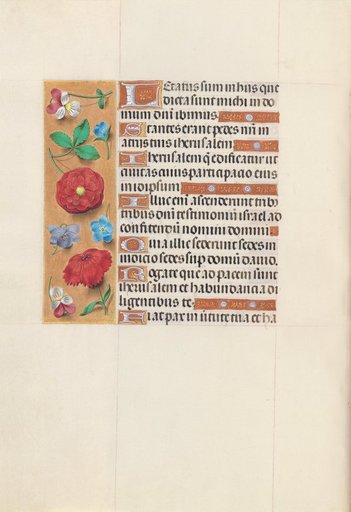 Letatus sum in hiis que
dicta sunt michi in do
mum dñi ibimus.
Stantes erant pedes nr̃i in
atriis tuis iherusalem
Iherusalem q̃ edificatur ut
civitas cuius participacio eius
in idipsum
Illuc eñi ascenderunt tribꝰ
tribus dñi testimoniũ israel ad
confitendũ nomini domini
Quia illic sederunt sedes in
iudicio sedes sup̃ domũ david.
Rogate que ad pacem sunt
iherusalem et habundancia di
ligentibus te
Fiat pax in virtute tua et ha